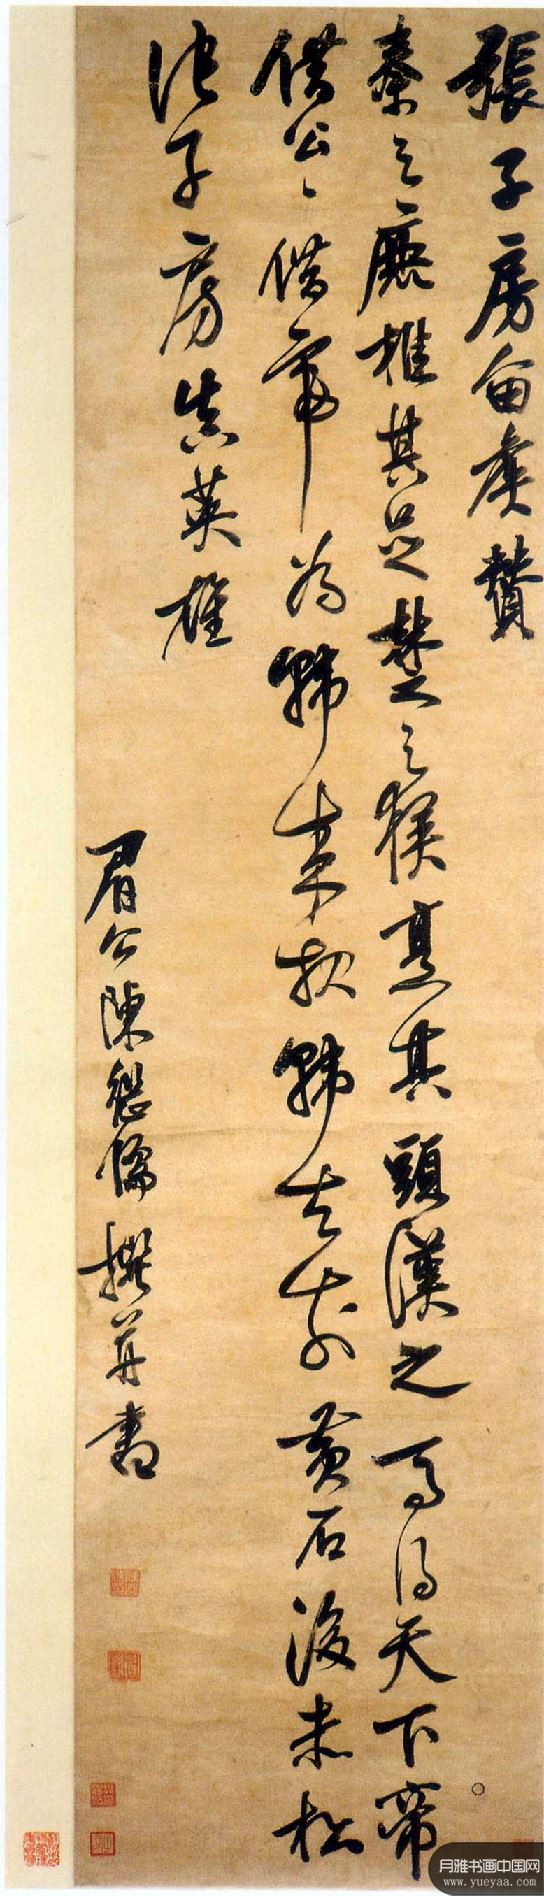 張子房留侯贊
秦之鹿椎其足楚之猴烹其頭漢之得天下帝
借公々借帝為韓來報韓去前黃石後赤松
張子房真英雄
眉公陳繼儒撰并書
月雅书画中国网
www.yueyaa.com